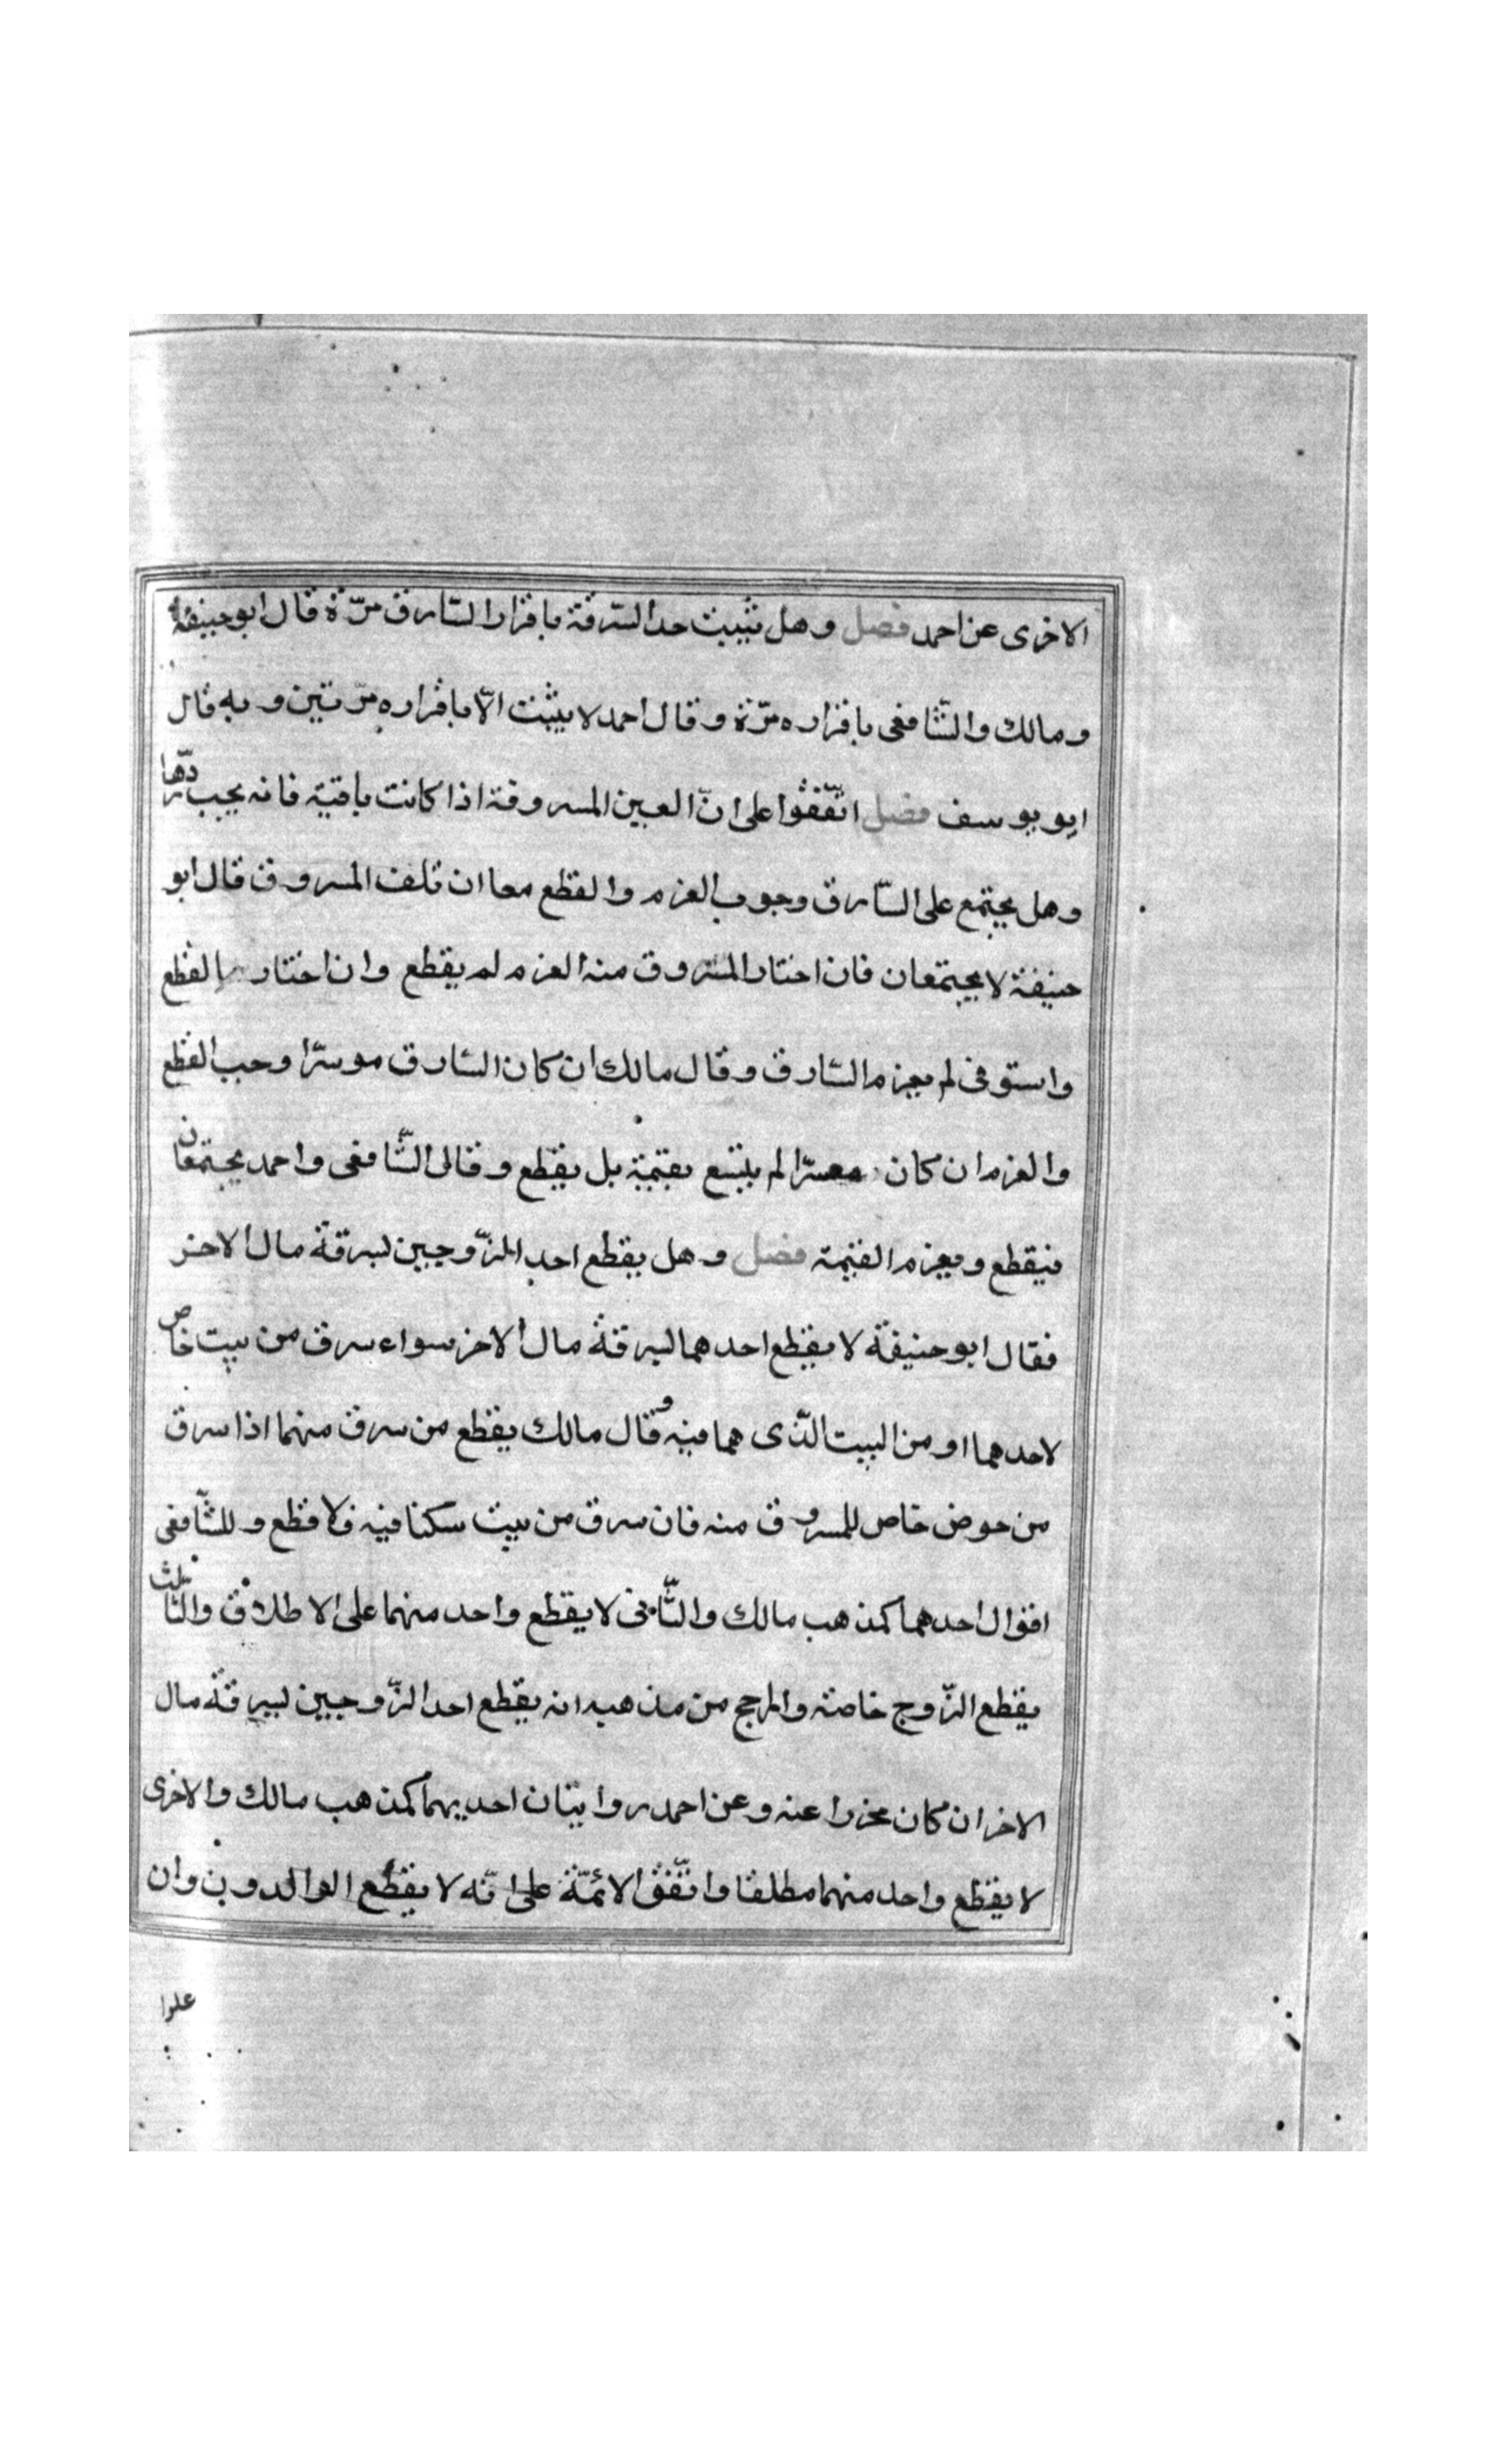 الاخرى عن احمد فصل وهل تثبت حد السّرقة باقرار السّارق مرّة قال ابو حنيفة
ومالك والشّافعى باقراره مرّة وقال احمد لا يثبت الّا باقراره مرّتين وبه قال
ابو يوسف فصل اتّفقوا على انّ العين المسروقة اذا كانت باقية فانه يجب ردّها
وهل يجتمع على السّارق وجوب الغرم والقطع معا ان تلف المسروق قال ابو
حنيفة لا يجتمعان فان اختار المسروق منه الغرم لم يقطع وان اختار القطع
واستوفى لم يغرم السّارق وقال مالك ان كان السّارق موسرّا وجب القطع
والغرم ان كان معسرّا لم يتبع بقيمة بل يقطع وقال الشّافعى واحمد يجتمعان
فيقطع ويغرم القيمة فصل وهل يقطع احد الزّوجين لسرقة مال الاخر
فقال ابو حنيفة لا يقطع احدهما لسرقة مال الاخر سواء سرق من بيت خاص
لاحدهما او من البيت الّذى هما فيه وقال مالك يقطع من سرق منهما اذا سرق
من حوض خاص للمسروق منه فان سرق من بيت سكنا فيه فلا قطع وللشّافعى
اقوال احدهما كمذهب مالك والثّانى لا يقطع واحد منهما على الاطلاق والثّالث
يقطع الزّوج خاصّة والمرجح من مذهبه انه يقطع احد الزّوجين لسرقة مال
الاخر ان كان محرزا عنه وعن احمد روايتان احديهما كمذهب مالك والاخرى
لا يقطع واحد منهما مطلقا واتّفق الائمّة على انّه لا يقطع الوالدون وان
علوا